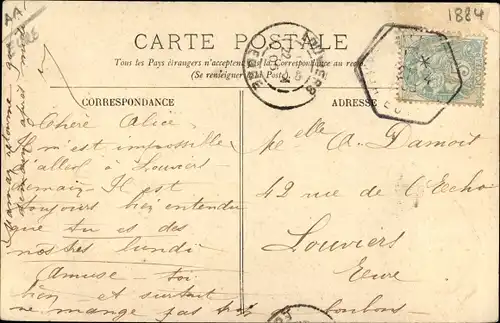 AA
1884
CARTE POSTALE
Tous les Pays étrangers n'acceptent pas la Correspondance au recto
(Se renseigner à la Poste).
CORRESPONDANCE
ADRESSE
LOUVIERS
EURE
Chère Alice
Il m'est impossible
d'aller à Louviers
demain. Il est
toujours bien entendu
que tu es des
nôtres lundi
Amuse-toi
bien et surtout
ne mange pas trop
bonbons.
Maman retourne
demain après midi
Melle A. Damoit
42 rue de l'Echo
Louviers
Eure